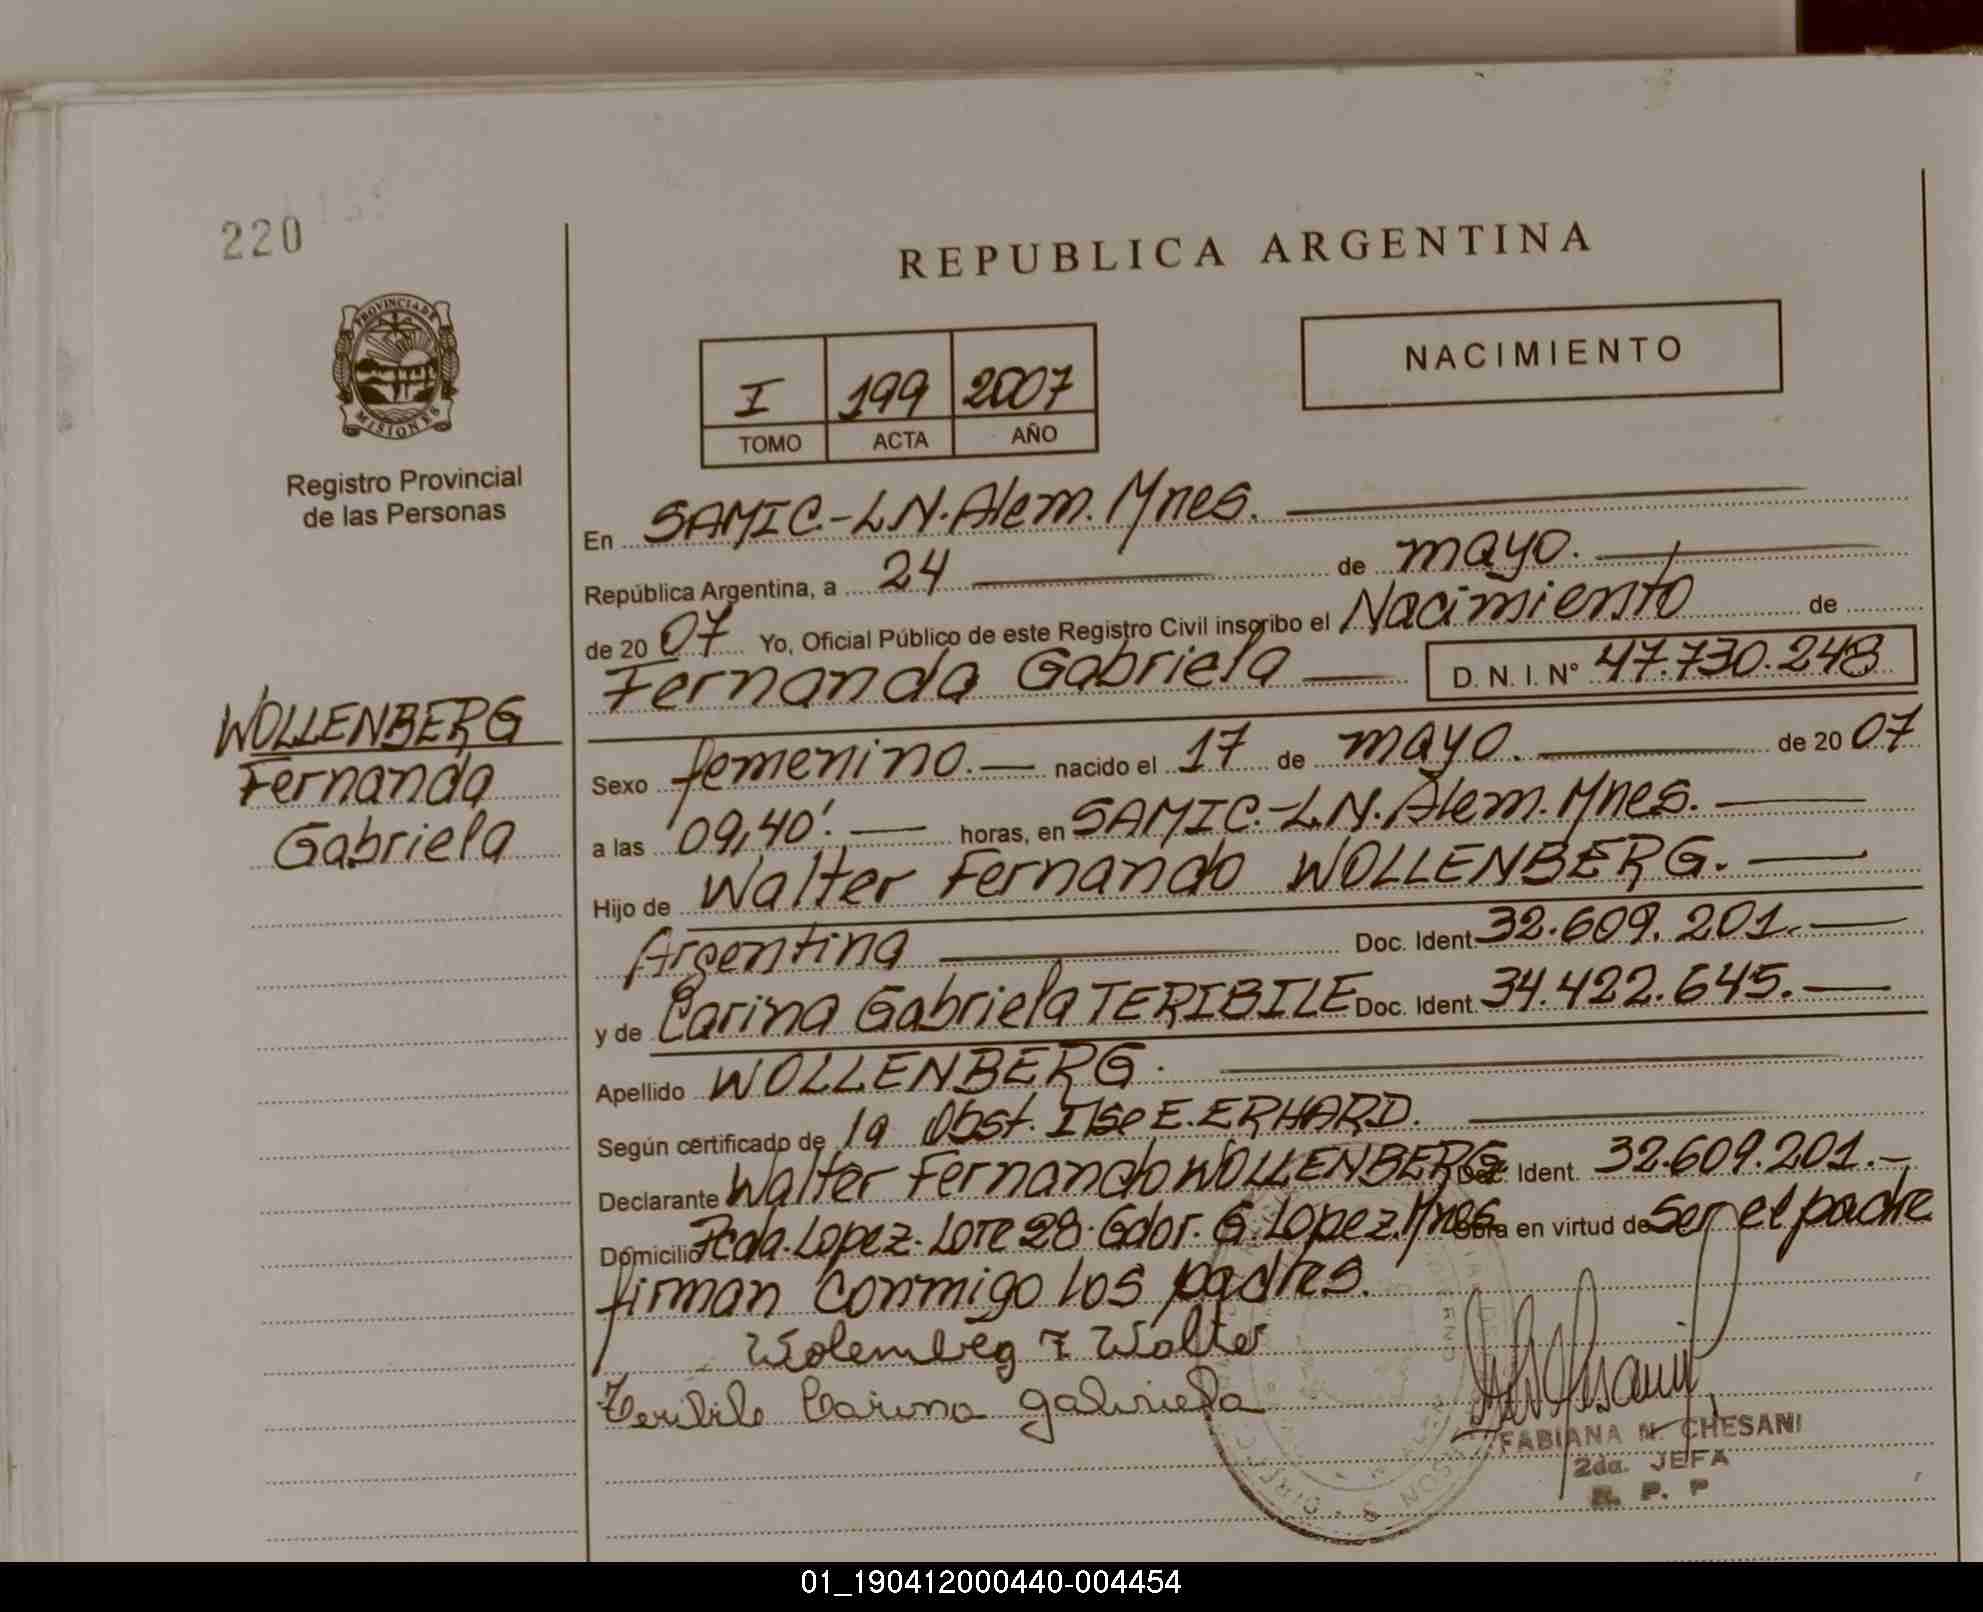 220
REPUBLICA ARGENTINA
PROVINCIA DE
MISIONES
Registro Provincial
de las Personas
NACIMIENTO
I 199 2007
TOMO ACTA AÑO
En SAMIC-LN.Alem.Mnes.
República Argentina, a 24 de mayo.
de 2007 Yo, Oficial Público de este Registro Civil inscribo el Nacimiento de
Fernanda Gabriela D. N. I. Nº 47.730.248
WOLLENBERG
Fernanda
Gabriela
Sexo femenino.- nacido el 17 de mayo. de 2007
a las 09,40'. horas, en SAMIC.-LN.Alem.Mnes.
Hijo de Walter Fernando WOLLENBERG.
Argentina Doc. Ident. 32.609.201.-
y de Carina Gabriela TERIBILE Doc. Ident. 34.422.645.-
Apellido WOLLENBERG.
Según certificado de la Obst. Ilse E. ERHARD.
Declarante Walter Fernando WOLLENBERG Doc. Ident. 32.609.201.-
Domicilio Lopez. Lote 28. Gdor. G. Lopez. Mnes Obra en virtud de Ser el padre
firman conmigo los padres.
Wolemberg F Walter
Teribile Carina gabriela
FABIANA N. CHESANI
2da. JEFA
R. P. P
01_190412000440-004454